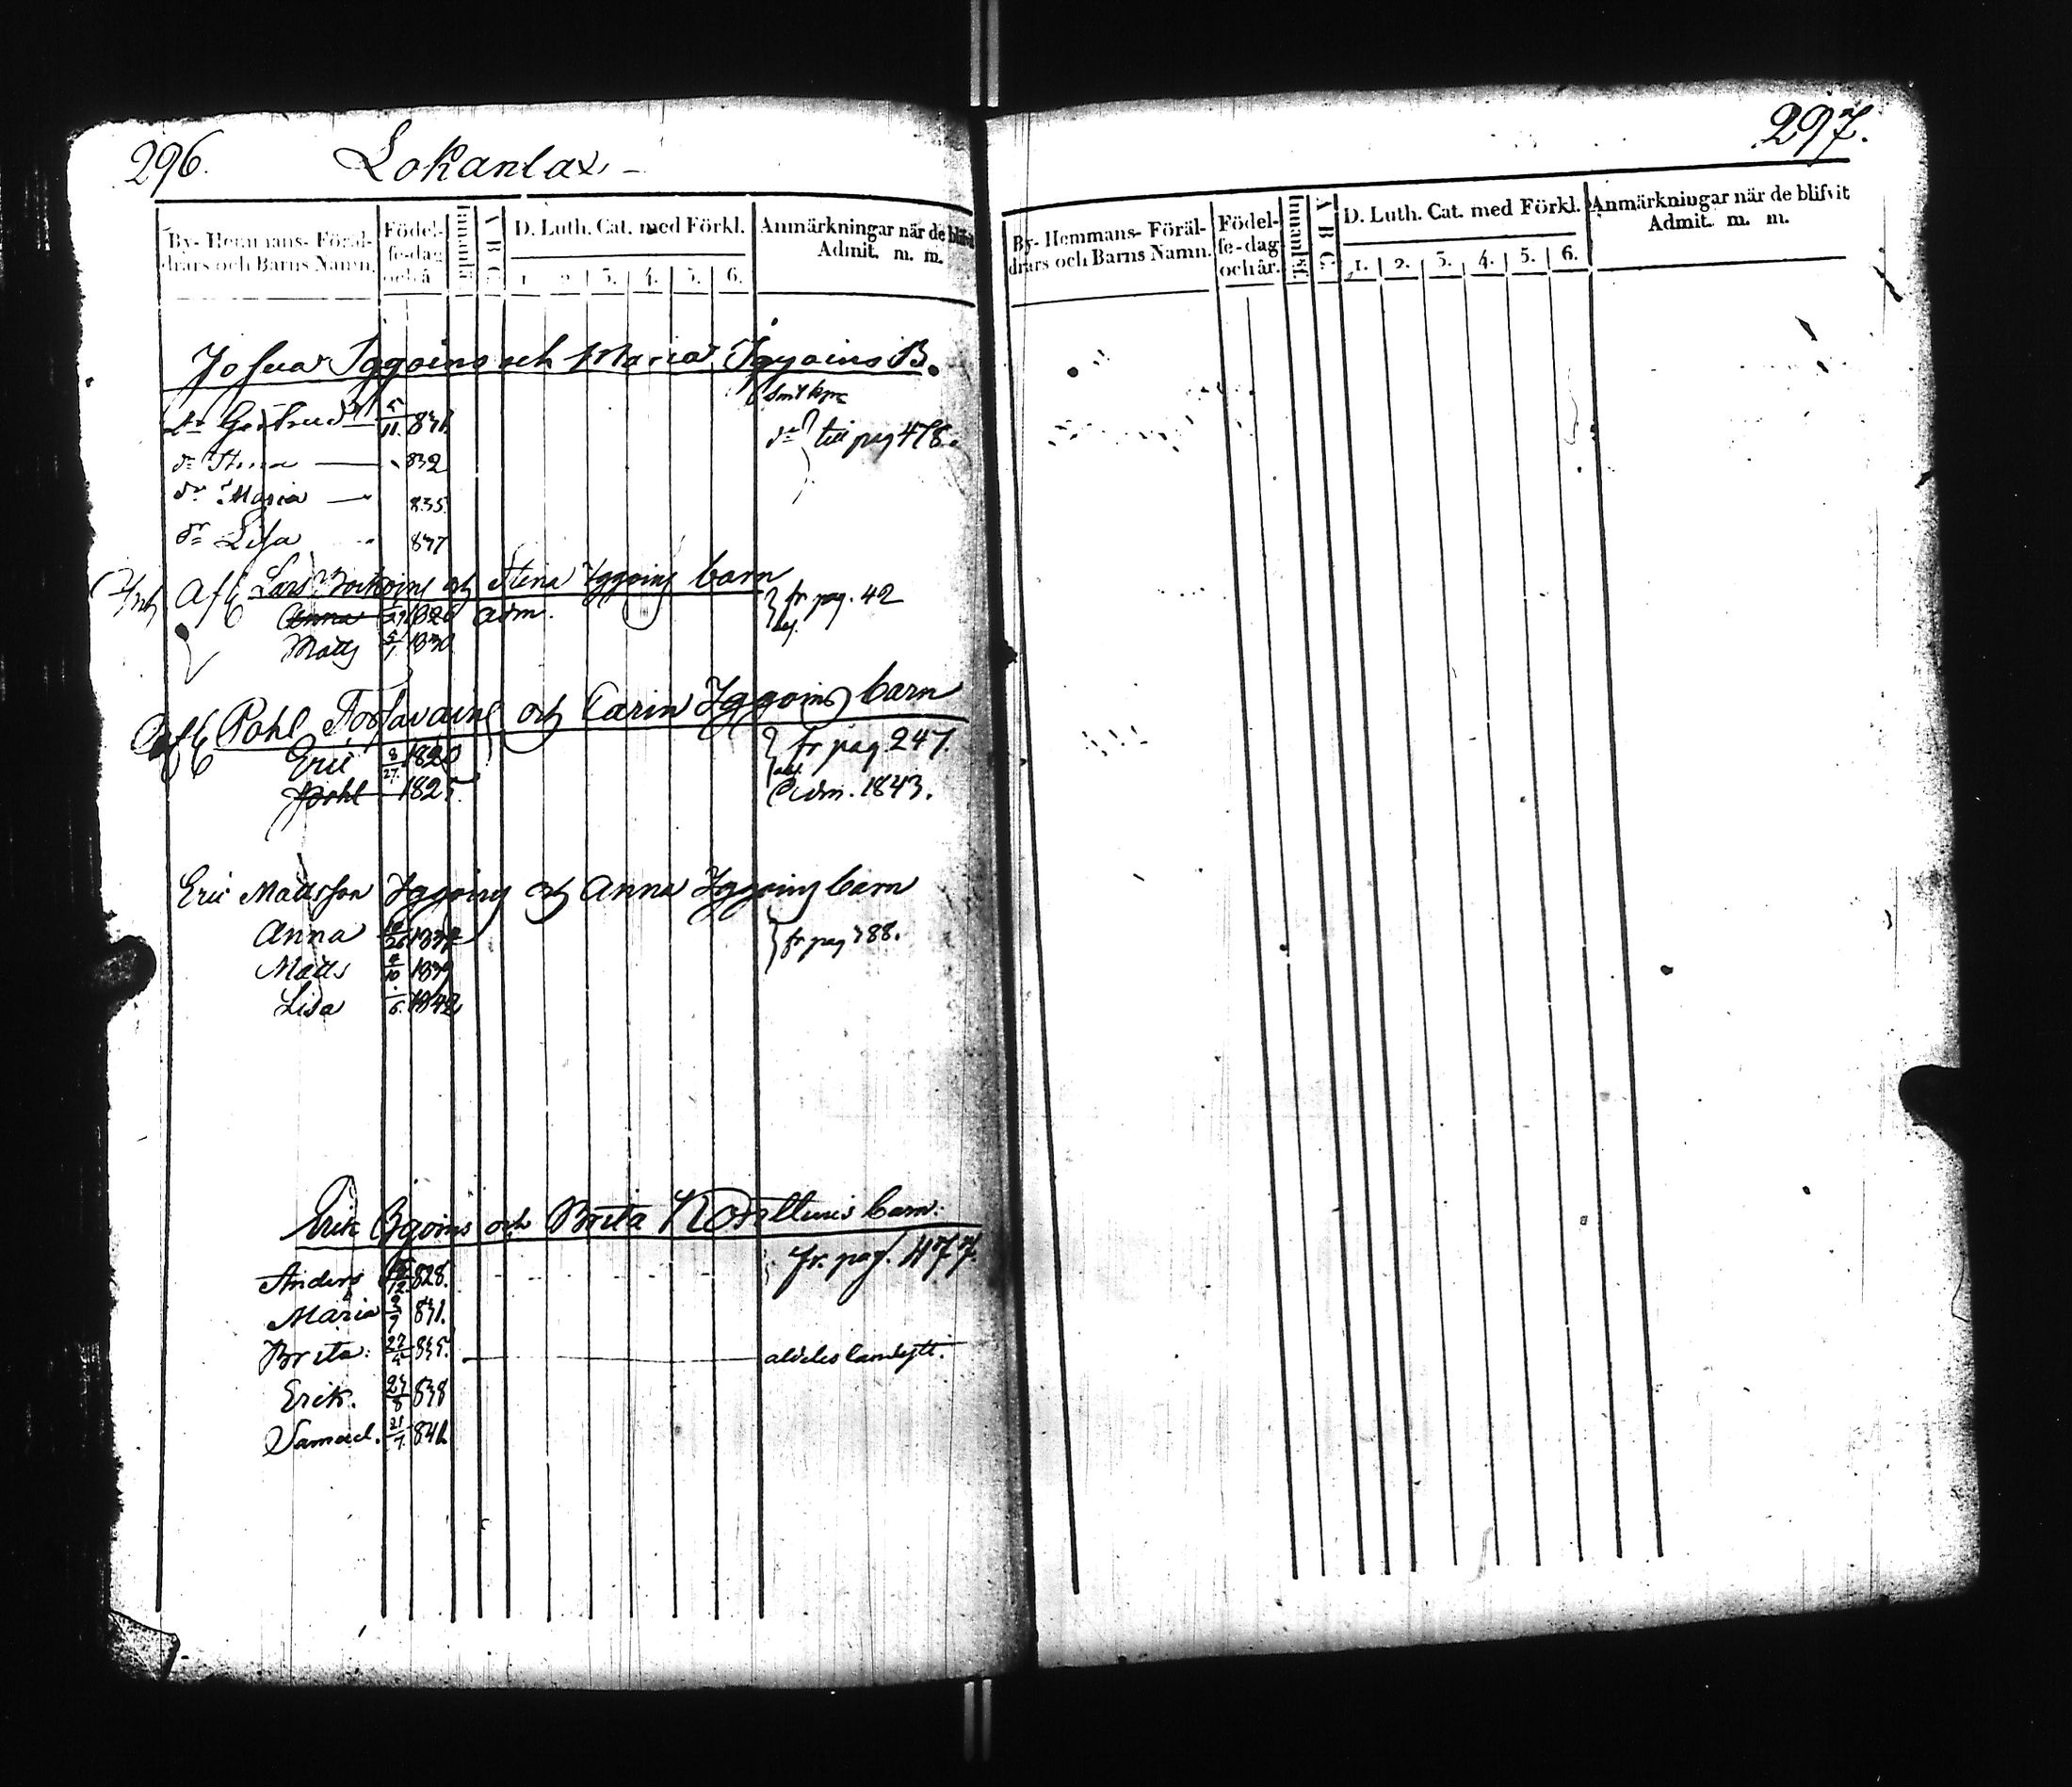 296. Lokanlax.
By- Hemmans- Föräl-
drars och Barns Namn.
Födel-
se-dag
och å
A B C
D. Luth. Cat. med Förkl.
1. 2. 3. 4. 5. 6.
Anmärkningar när de blifvit
Admit. m. m.
Josua Iggoins och Maria Iggoins B.
Dr Gertrud 5/11. 831.
dr till pag 478.
dr Stina — 832
dr Maria — 835.
dr Lisa 837
Afl Lars och Stena Iggoins barn
Anna 1826 adm. fr. pag. 42
Matts 5/1 1830
Afl Pohl och Carin Iggoins barn
Eric 8/27. 1820 fr pag 247.
Pohl 1825. Adm. 1843.
Eric Mattsson Iggoins och Anna Iggoins barn
Anna 1837 fr pag 388.
Matts 1839
Lisa 6. 1842
Erik Iggoins och Brita barn.
Anders 12. 828. fr. pag. 477.
Maria 831.
Brita. 27/4 835. — aldeles
Erik. 24/8 838
Samuel. 21/7. 841.
297.
By- Hemmans- Föräl-
drars och Barns Namn.
Födel-
se-dag
och år.
Innanläs.
A B C
D. Luth. Cat. med Förkl.
1. 2. 3. 4. 5. 6.
Anmärkningar när de blifvit
Admit. m. m.